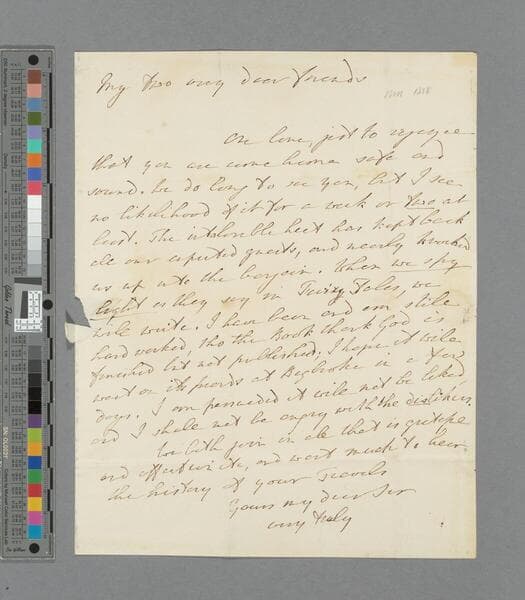 My two very dear friends
One line, just to rejoyce
that you are come home safe and
sound. We do long to see you, but I see
no likelihood of it for a week or two at
least. The intolerable heat has kept back
all our expected guests, and nearly knocked
us up into the bargain. When we spy
light as they say in Fairy Tales, we
will write. I have been and am still
hard worked, tho the Book thank God is
finished but not published; I hope it will
wait on its friends at Begbroke in a few
days. I am persuaded it will not be liked
and I shall not be angry with the dislikers.
We both join in all that is grateful
and affectionate, and want much to hear
the history of your Travels
Yours my dear Sir
very truly